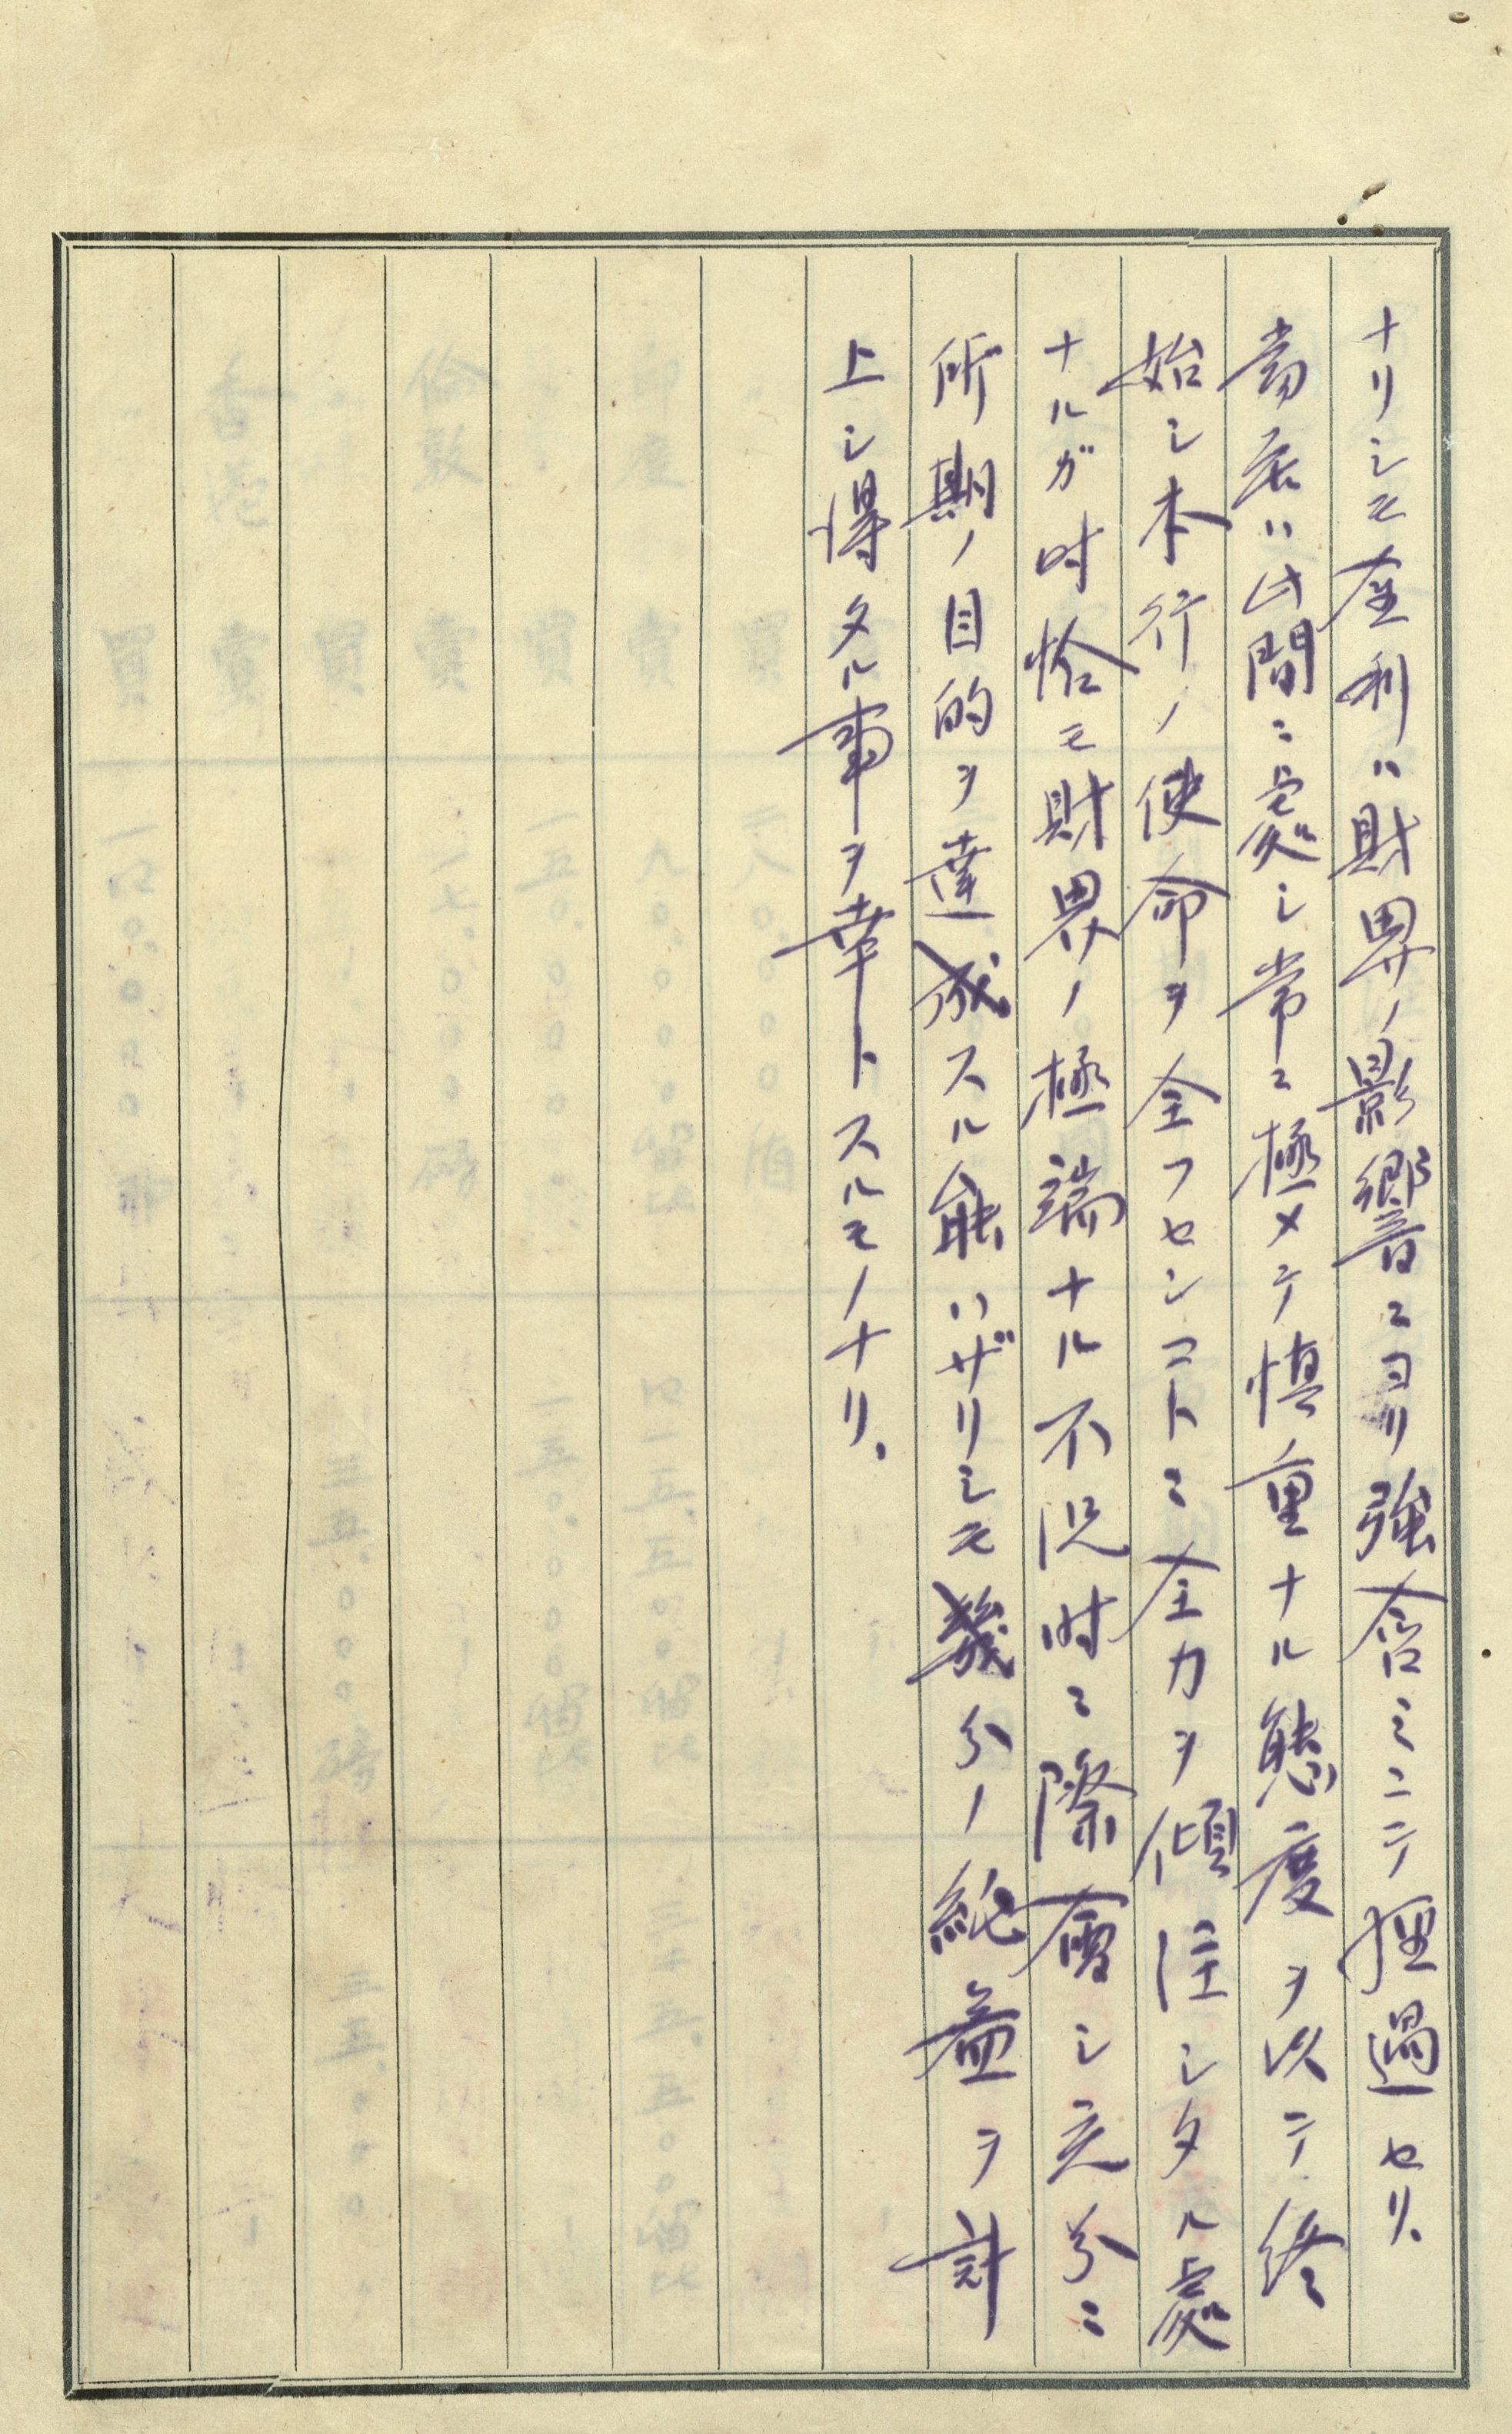 ナリシモ金利ハ財界ノ影響ニヨリ強含ミニテ経過セリ、
当店ハ此間ニ處シ常ニ極メテ慎重ナル態度ヲ以テ終
始シ本行ノ使命ヲ全フセンコトニ全力ヲ傾注シタル處
ナルガ時恰モ財界ノ極端ナル不況時ニ際會シ充分ニ
所期ノ目的ヲ達成スル能ハザリシモ幾分ノ純益ヲ計
上シ得タル事ヲ幸トスルモノナリ、